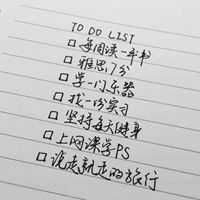 TO DO LIST
□ 每阅读一本书
□ 雅思7分
□ 学一门乐器
□ 找一份实习
□ 坚持每天健身
□ 上网课学PS
□ 说走就走的旅行